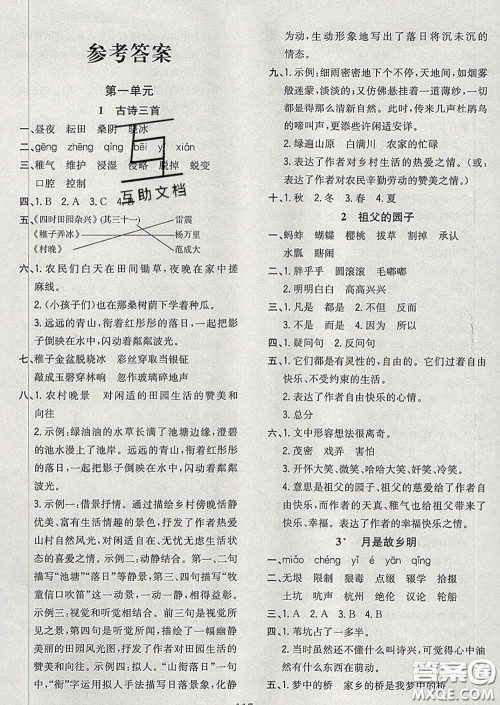 参考答案
第一单元
1 古诗三首
一、昼夜 耘田 桑阴 晓冰
二、gēng zhēng qìng
三、稚气 维护 浸湿 侵略 脱掉 蜕变
口腔 控制
四、1. B 2. A 3. C 4.
五、《四时田园杂兴》(其三十一) 雷震
《稚子弄冰》 杨万里
《村晚》 范成大
六、1. 农民们白天在田间锄草，夜晚在家中搓
麻线。
2. (小孩子们)也在那桑树荫下学着种瓜。
3. 远远的青山，衔着红彤彤的落日，
影子倒映在水中，闪动着粼粼
波光。
七、稚子金盆脱晓冰 彩丝穿取当银钲
敲成玉磬穿林响 忽作玻璃碎地声
八、1. 农村晚景 对闲适的田园生活的赞美和
向往
2. 示例：绿油油的水草长满了池塘，澄碧
的池水漫上了塘岸。远远的青山，衔着红
彤彤的落日，影子倒映在水中，闪动着粼粼
波光。
3. 示例一：借景抒情。通过描绘乡村傍晚恬静
优美、富有生活情趣的景色，抒发了作者热爱
山村景物和自然风光，向往田园风光和乡村生活
状态的喜爱之情。示例二：动静结合。一、二句
描写“池塘”“落日”等静景，三、四句描写“牧童
信口吹笛”这一动景，一动一静，富有意境。
示例三：视觉和听觉相结合。前三句是视觉
描写，第四句是听觉描写，绘声绘色，形象生动地
描绘出田园风光图，抒发了作者对恬静优美的
田园生活的赞美之情。
示例四：拟人。“山衔落日”一句中，
“衔”字运用拟人手法，化静
为动，生动形象地写出了落日将沉未沉的
情态。
九、1. 示例：细雨密密地下个不停，天地间，如烟雾
般迷蒙，淡淡的；我仿佛看到一张朦胧的画卷，
那里的一切都显得那么清新自然。时而传来几声杜鹃鸟
的啼叫声，更添来些许闲适安详。
2. 示例：绿遍山原 白满川 农家的忙碌
3. 表达了作者对乡村生活的热爱之情。(表达了
作者对农民辛勤劳动的赞美之情)
十、秋 春 冬 夏
2 祖父的园子
一、蚂蚱 蝴蝶 樱桃 拔草 割掉 承认
水瓢 瞎闹
二、1. 胖乎乎 圆滚滚 毛嘟嘟
2. 明明白白 高高兴兴
三、1. 凡是 都是 2. 不是 但是
四、1. 疑问句 2. 反问句
五、1. 它们都是有灵性的，自由的。它们是自由
快乐、不受约束的生活。
2. 表达了作者自由快乐的心情。
3. 总分
六、1. 文中形容想法很离奇。
2. 或者 戏弄 害怕
3. 开怀大笑、微笑、含笑、嘲笑、哈哈大笑、苦笑
4. 表达了作者的天真、稚气和作者的幸福和
快乐。表达了作者的幸福快乐之情。
3* 月是故乡明
一、miǎo chéng yī é yān qīng
二、无垠 限制 狠毒 点缀 辍学 拾掇
土坑 坑杀 杭州 航行
三、1. A 2. A 3. B 4. B
四、1. 苇坑占了一多半。
2. 当时虽然还不懂什么叫诗兴，可是觉得心中油然
有什么东西在萌动。
五、1. 梦中的桥 家乡的桥是我梦中的桥
互助文档
答案圈
MXQE.COM